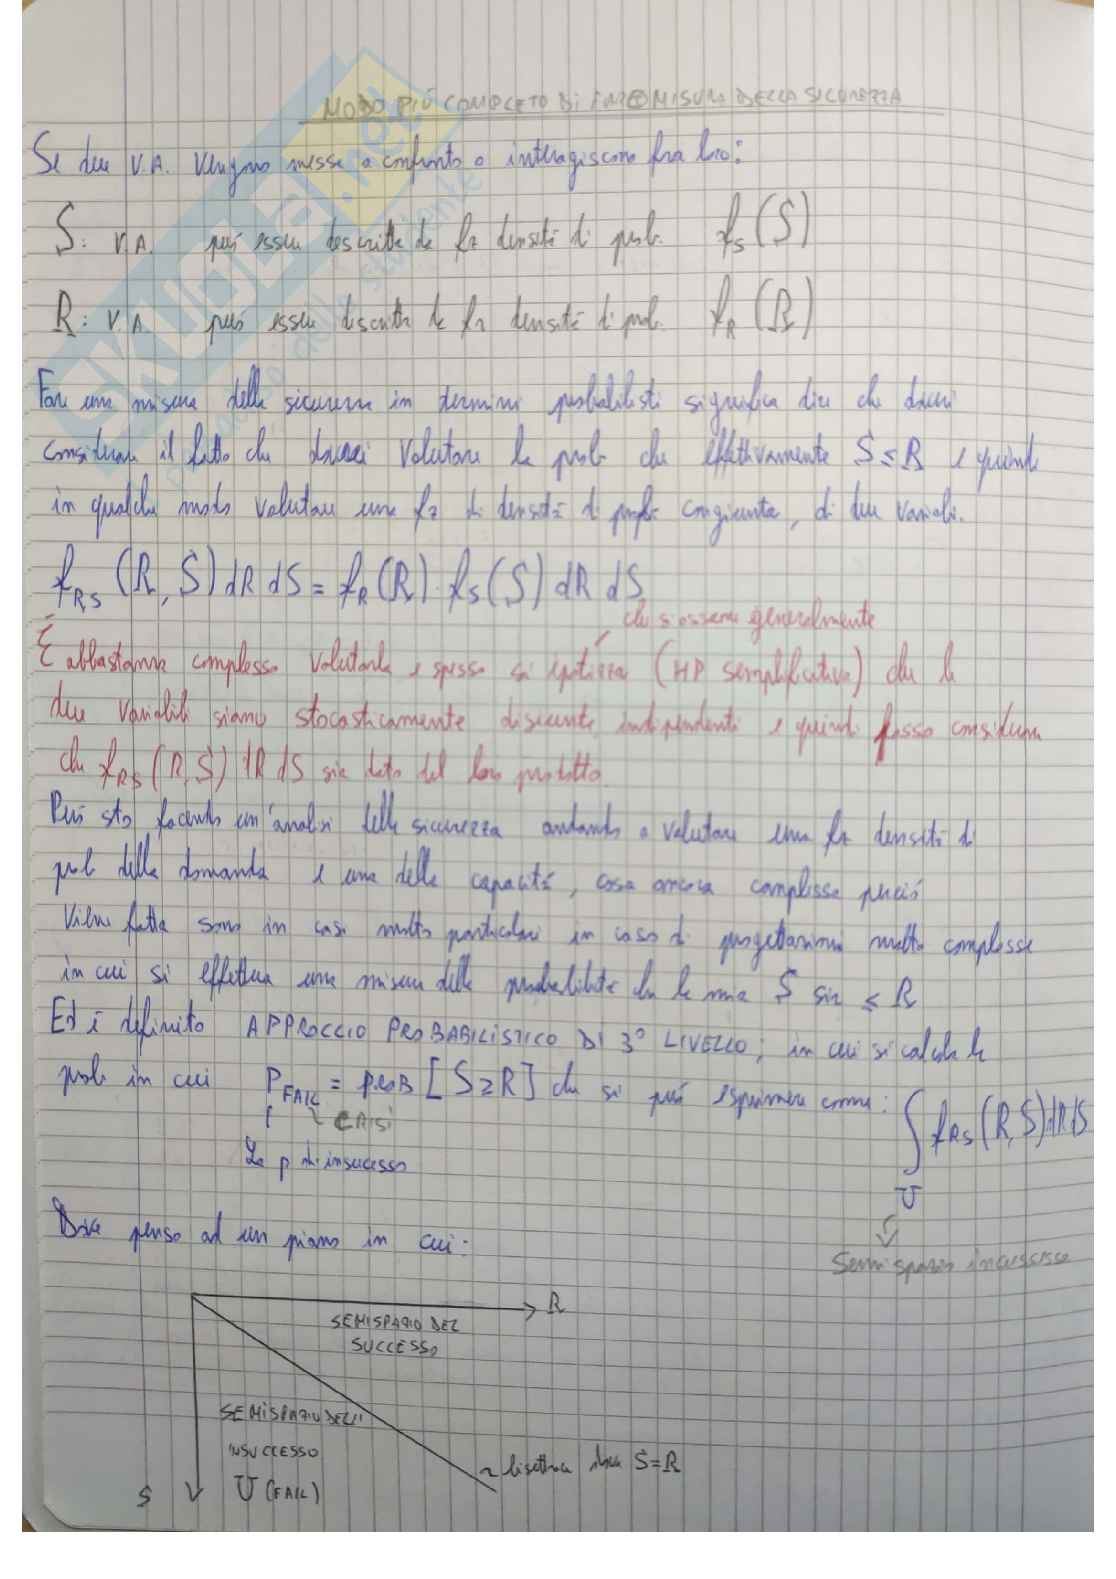 MODO PIÚ COMPLETO DI FARE MISURA DELLA SICUREZZA
Se due V.A. vengono messe a confronto o interagiscono fra loro:
S: V.A. può essere descritta da fz densità di prob. fs(S)
R: V.A. può essere descritta da fz densità di prob. fR(R)
Fare una misura della sicurezza in termini probabilisti significa dire che dovrei
considerare il fatto che dovrei valutare la prob che effettivamente S≤R e quindi
in qualche modo valutare una fz di densità di prob congiunta, di due variabili.
fRS (R, S) dR dS = fR(R) · fS(S) dR dS
che si osserva generalmente
É abbastanza complesso valutarla e spesso si ipotizza (HP semplificativa) che le
due variabili siano stocasticamente indipendenti e quindi posso considerare
che fRS (R, S) dR dS sia dato dal loro prodotto.
Può sto facendo un'analisi della sicurezza andando a valutare una fz densità di
prob della domanda e una della capacità, cosa ancora complessa perciò
viene fatta sono in casi molto particolari in caso di progettazioni molto complesse
in cui si effettua una misura della probabilità che la mia S sia ≤ R
Ed è definito APPROCCIO PROBABILISTICO DI 3° LIVELLO; in cui si calcola la
prob in cui PFAIL = PROB [S≥R] che si può esprimere come: ∫ fRS (R, S) dR dS
CRISI
U
La p di insuccesso
Semispazio insuccesso
penso ad un piano in cui:
R
SEMISPAZIO DEL
SUCCESSO
SEMISPAZIO DELL'
INSUCCESSO
U (FAIL)
S
bisettrice dove S=R
SKUOLA.net